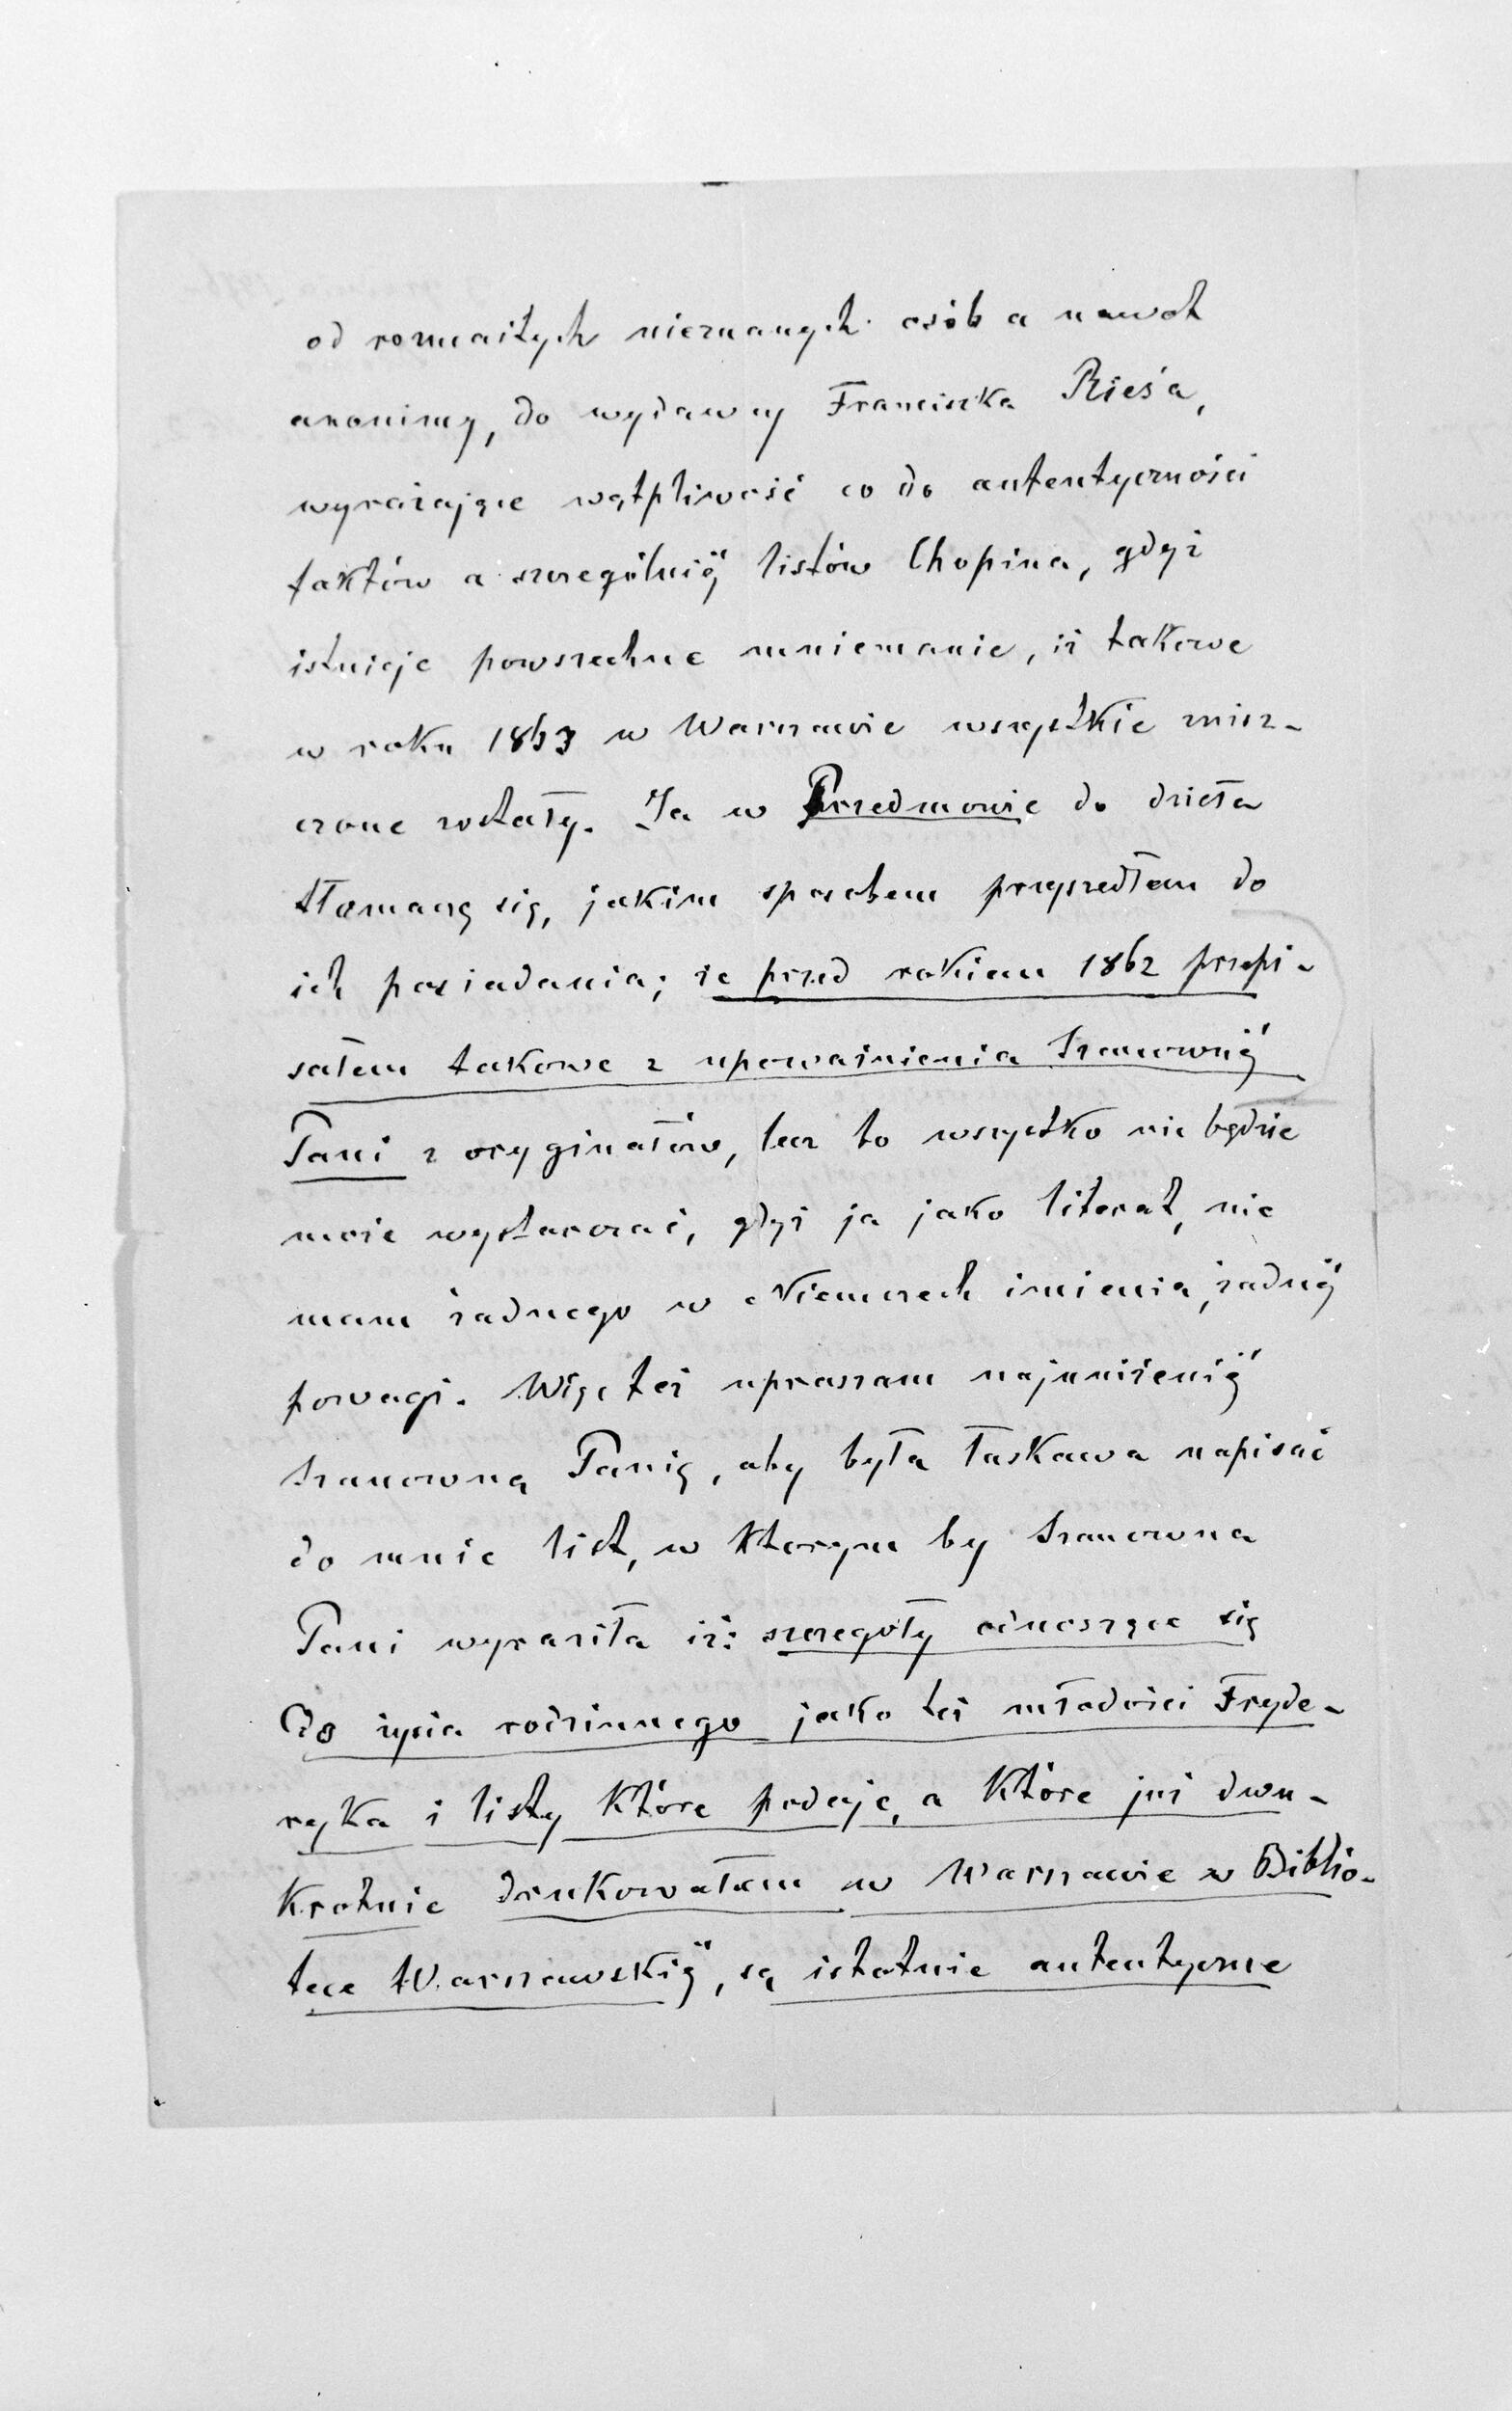 od rozmaitych nieznanych osób a nawet
anonimy, do wydawcy Franciszka Ries'a,
wyrażające wątpliwość co do autentyczności
faktów a szczególniéj listów Chopina, gdyż
istnieje powszechne mniemanie, iż takowe
w roku 1863 w Warszawie wszystkie znisz-
czone zostały. Ja w Przedmowie do dzieła
tłomaczę się, jakim sposobem przyszedłem do
ich posiadania; że przed rokiem 1862 przepi-
sałem takowe z upoważnienia Szanownéj
Pani z oryginałów, lecz to wszystko nie będzie
może wystarczać, gdyż ja jako literat, nie
mam żadnego w Niemczech imienia, żadnéj
powagi. Więc też upraszam najuniżeniéj
Szanowną Panię, aby była łaskawa napisać
do mnie list, w ktorym by Szanowna
Pani wyraziła iż: szczegóły odnoszące się
do życia rodzinnego jako też młodości Fryde-
ryka i listy które podaję, a które już dwu-
krotnie drukowałem w Warszawie w Biblio-
tece Warszawskiéj, są istotnie autentyczne